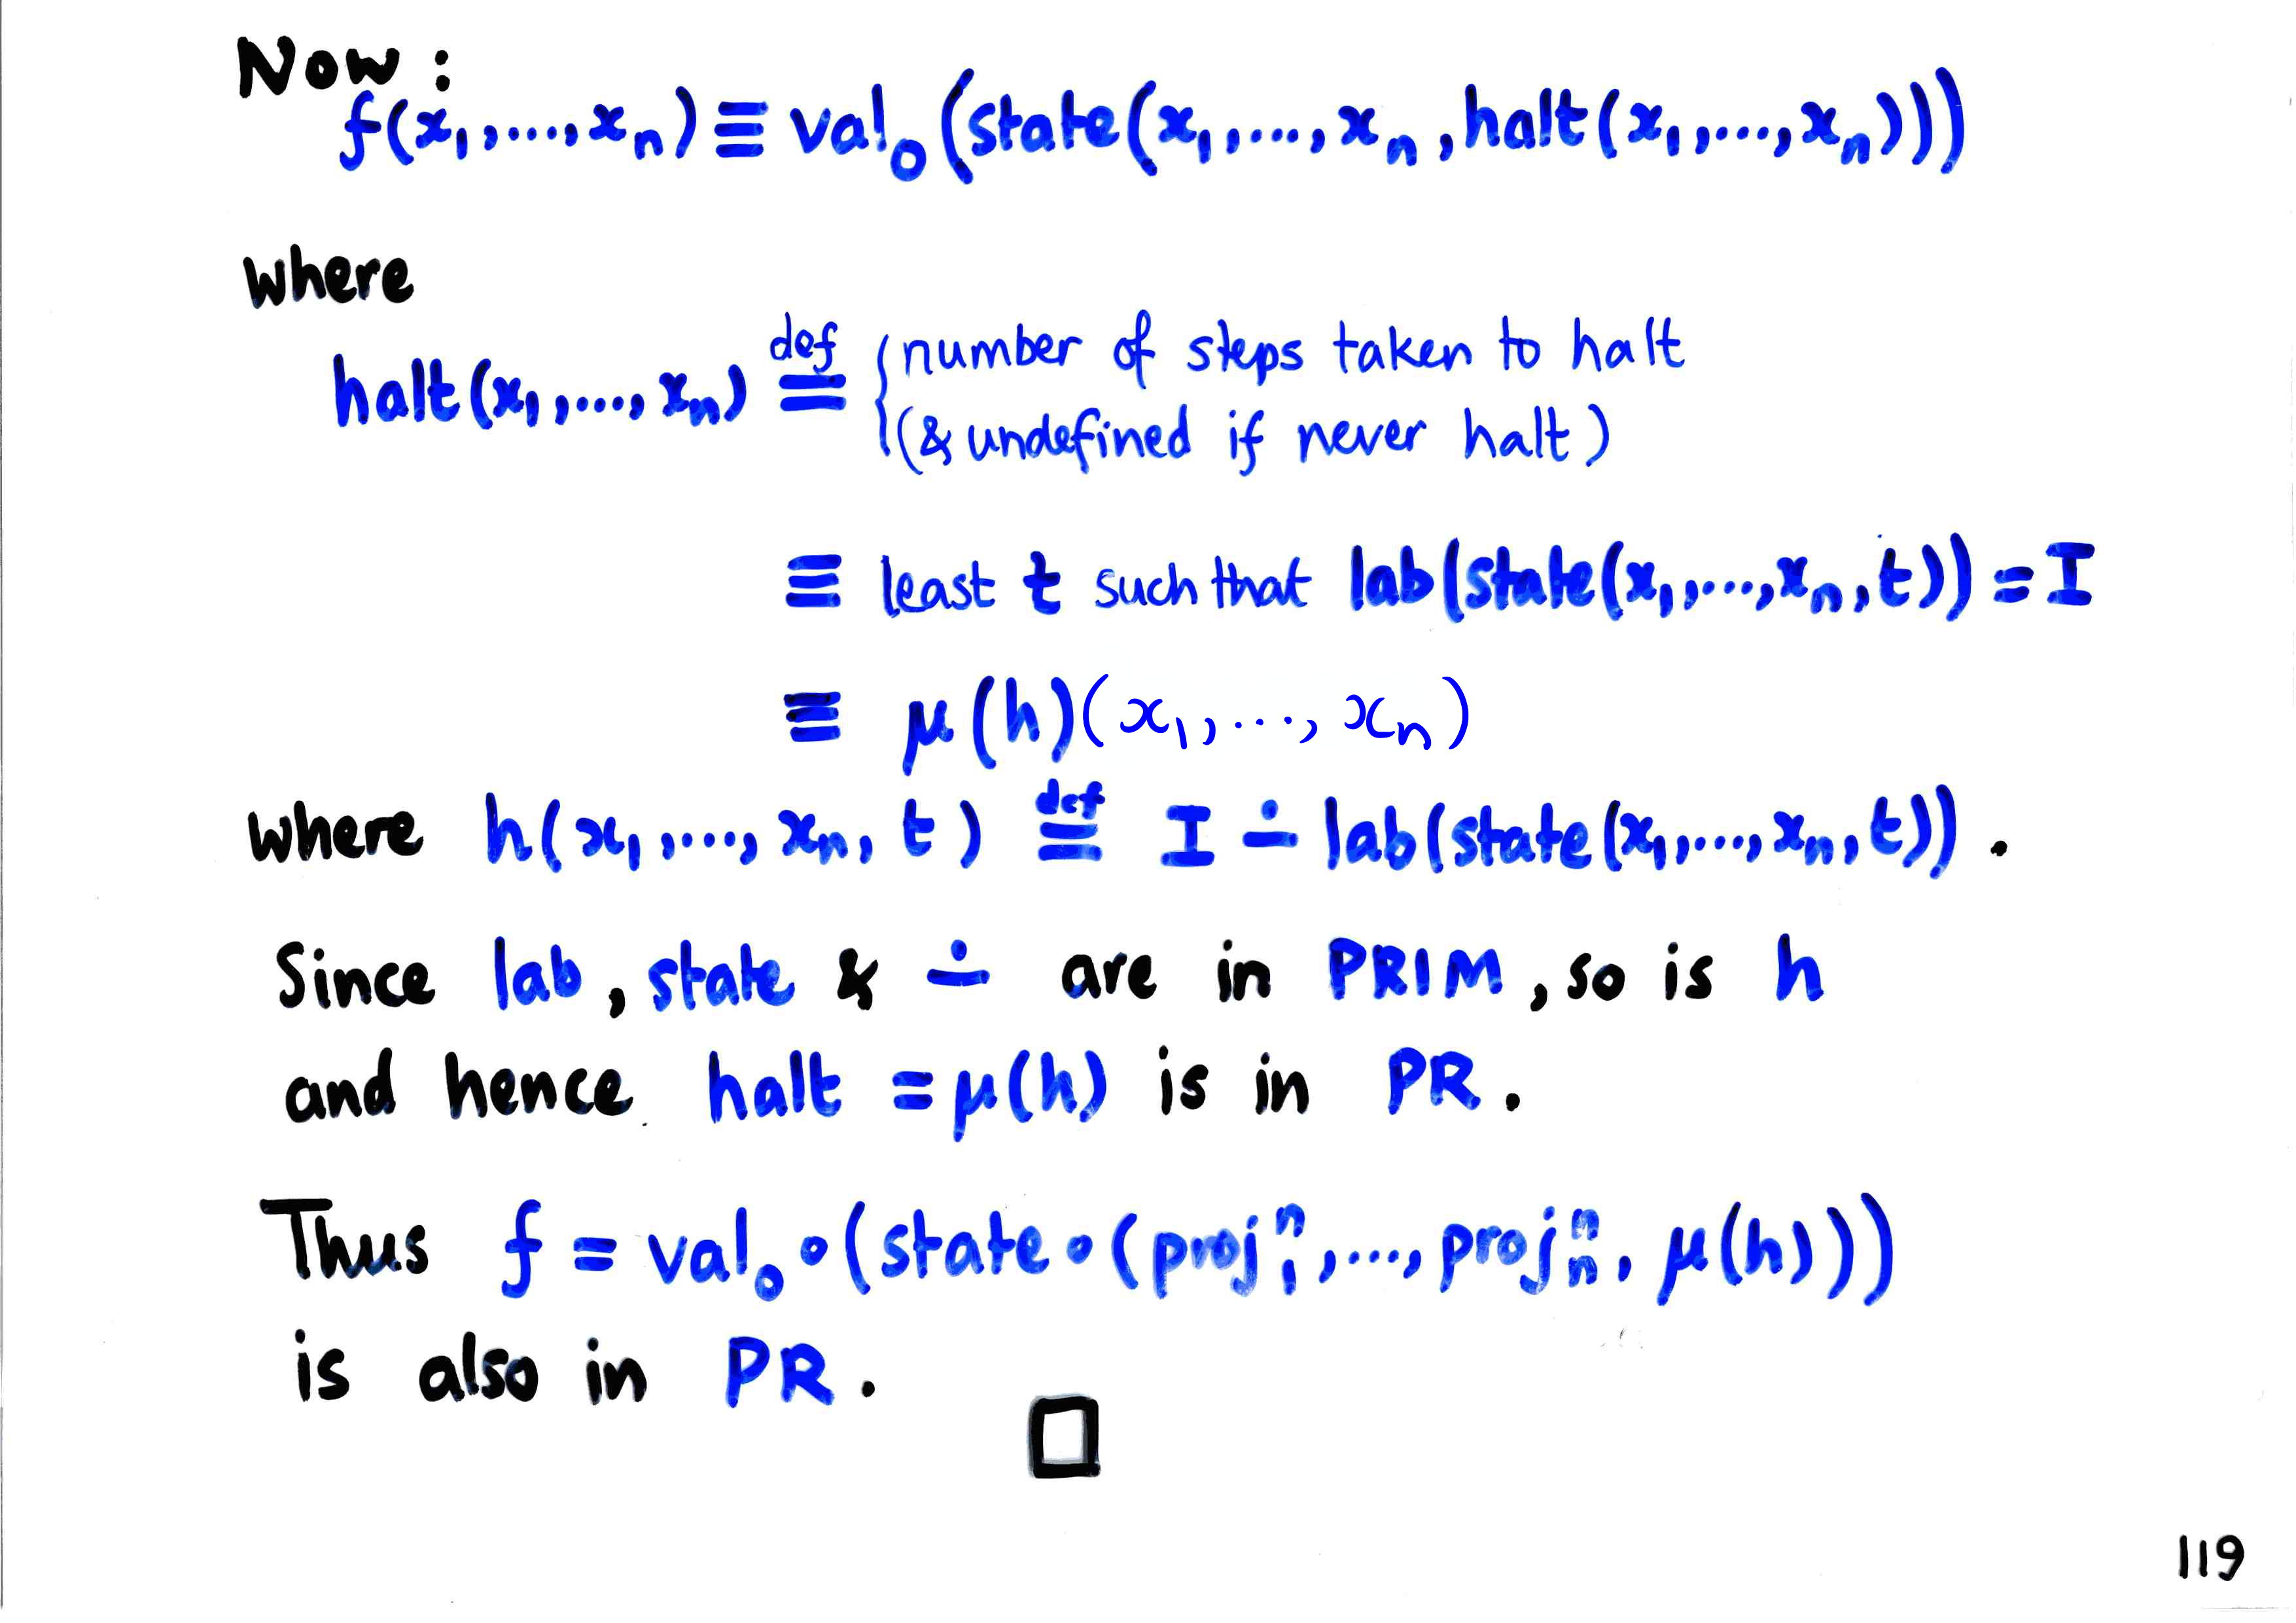 Now :
f(x₁,....,xₙ) ≡ val₀(state(x₁,....,xₙ,halt(x₁,....,xₙ)))
where
halt(x₁,....,xₙ) def= {number of steps taken to halt
(& undefined if never halt)
≡ least t such that lab(state(x₁,....,xₙ,t)) = I
≡ μ(h)(x₁,...,xₙ)
where h(x₁,....,xₙ,t) def≡ I ∸ lab(state(x₁,....,xₙ,t)) .
Since lab, state & ∸ are in PRIM, so is h
and hence halt = μ(h) is in PR.
Thus f = val₀∘(state∘(projⁿ₁,....,projⁿₙ,μ(h)))
is also in PR.
□
119